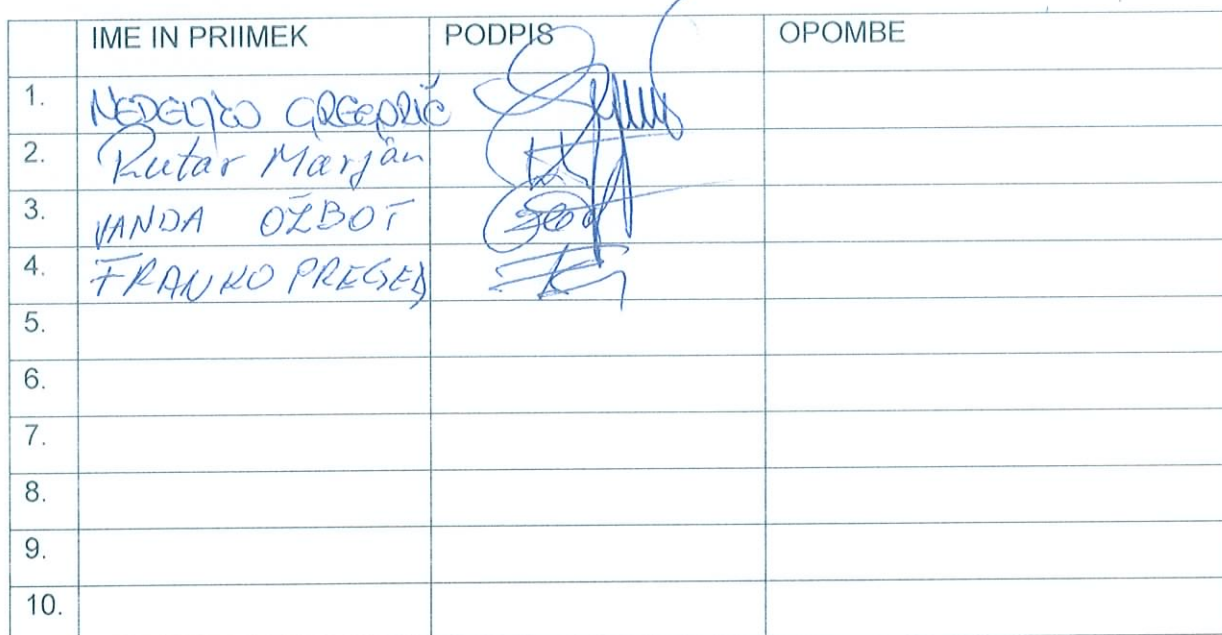 IME IN PRIIMEK PODPIS OPOMBE
1. NEDELJKO GREGORIČ
2. Rutar Marjan
3. VANDA OŽBOT
4. FRANKO PREGELJ
5.
6.
7.
8.
9.
10.